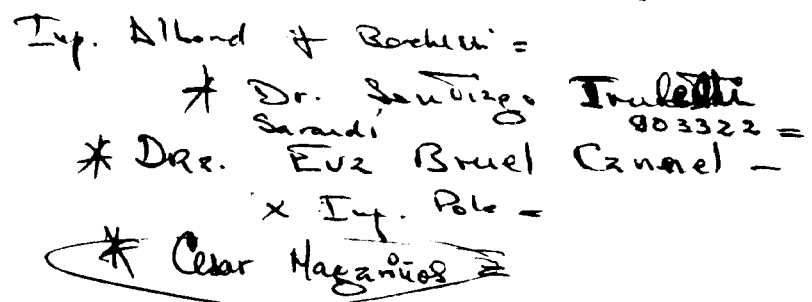 Ing. Alband y Bachetti =
* Dr. Santiago
Sarandí 903322 =
* DRa. Eva Bruel Carmel -
x Ing. Polo =
* Cesar Magariños =